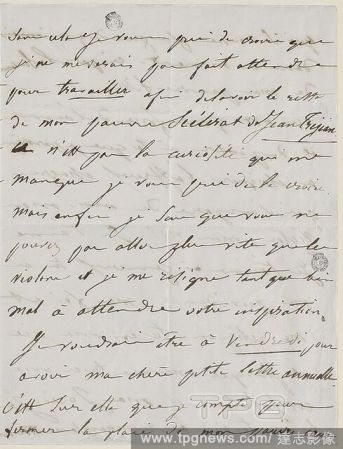 je vous prie de croire que
je ne me serais pas fait attendre
pour travailler afin de savoir le reste
de mon pauvre Scélérat de Jean Tréjean
ce n'est pas la curiosité qui me
manque je vous prie de le croire
mais enfin je sais que vous ne
pouvez pas aller plus vite que les
violons et je me résigne tant que bien
mal à attendre votre inspiration
Je voudrais être à Vendredi pour
avoir ma chère petite lettre annuelle
c'est sur elle que je compte pour
fermer la plaie de mon
TPG
www.tpgnews.com / 達志影像